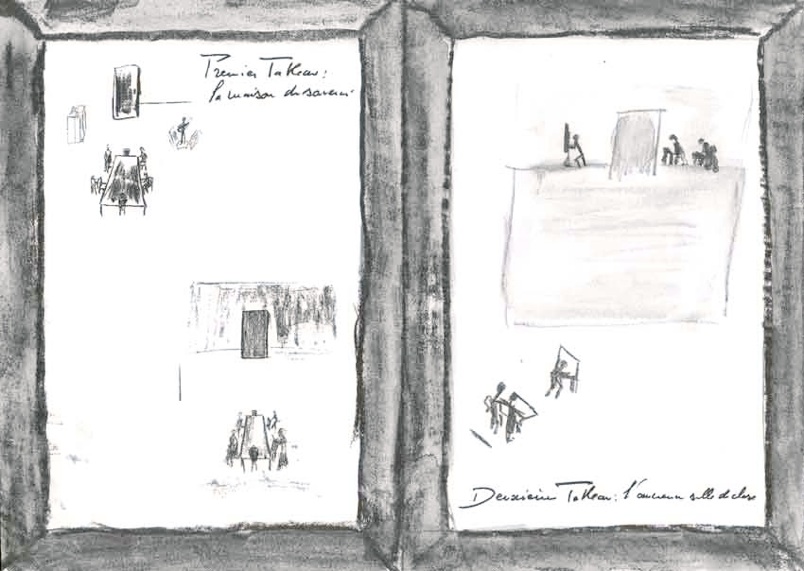 Premier Tableau:
la maison du savoir
Deuxième Tableau: l'ancienne salle de classe